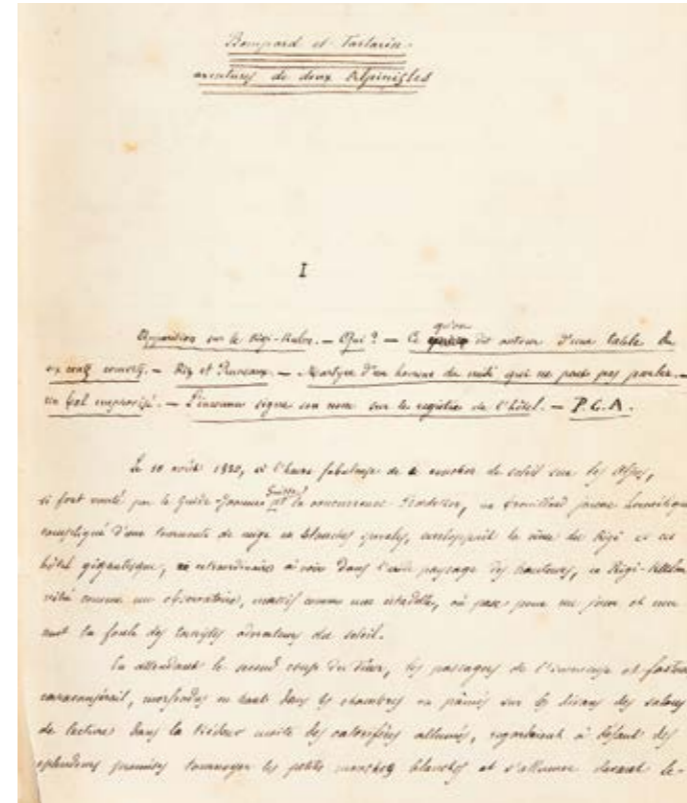 Bompard et Tartarin.
aventures de deux Alpinistes
I
Apparition sur le Rigi-Kulm. — Qui? — Ce qu'on dit autour d'une table de
six cents couverts. — Riz et Pruneaux. — Martyre d'un homme du midi qui ne peut pas parler. —
Un bal improvisé. — L'inconnu signe son nom sur le registre de l'hôtel. — P. C. A.
Le 10 août 1880, à l'heure fabuleuse de ce coucher de soleil sur les Alpes,
si fort vanté par le Guide-Joanne et la concurrence Baedeker, un brouillard jaune hermétique
compliqué d'une tourmente de neige en blanches spirales, enveloppait la cime du Rigi et cet
hôtel gigantesque, extraordinaire à voir dans l'aride paysage des hauteurs, ce Rigi-Kulm
vitré comme un observatoire, massif comme une citadelle, où pose pour un jour et une
nuit la foule des touristes adorateurs du soleil.
En attendant le second coup du dîner, les passagers de l'immense et fastueux
caravansérail, morfondus en haut dans les chambres ou pâmés sur les divans des salons
de lecture dans la tiédeur moite des calorifères allumés, regardaient à défaut des
splendeurs promises tournoyer les petites mouchetures blanches et s'allumer devant le